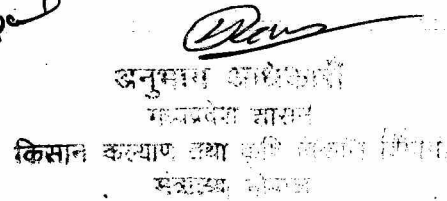 अनुभाग अधिकारी
मध्यप्रदेश शासन
किसान कल्याण तथा कृषि विकास विभाग
मंत्रालय भोपाल